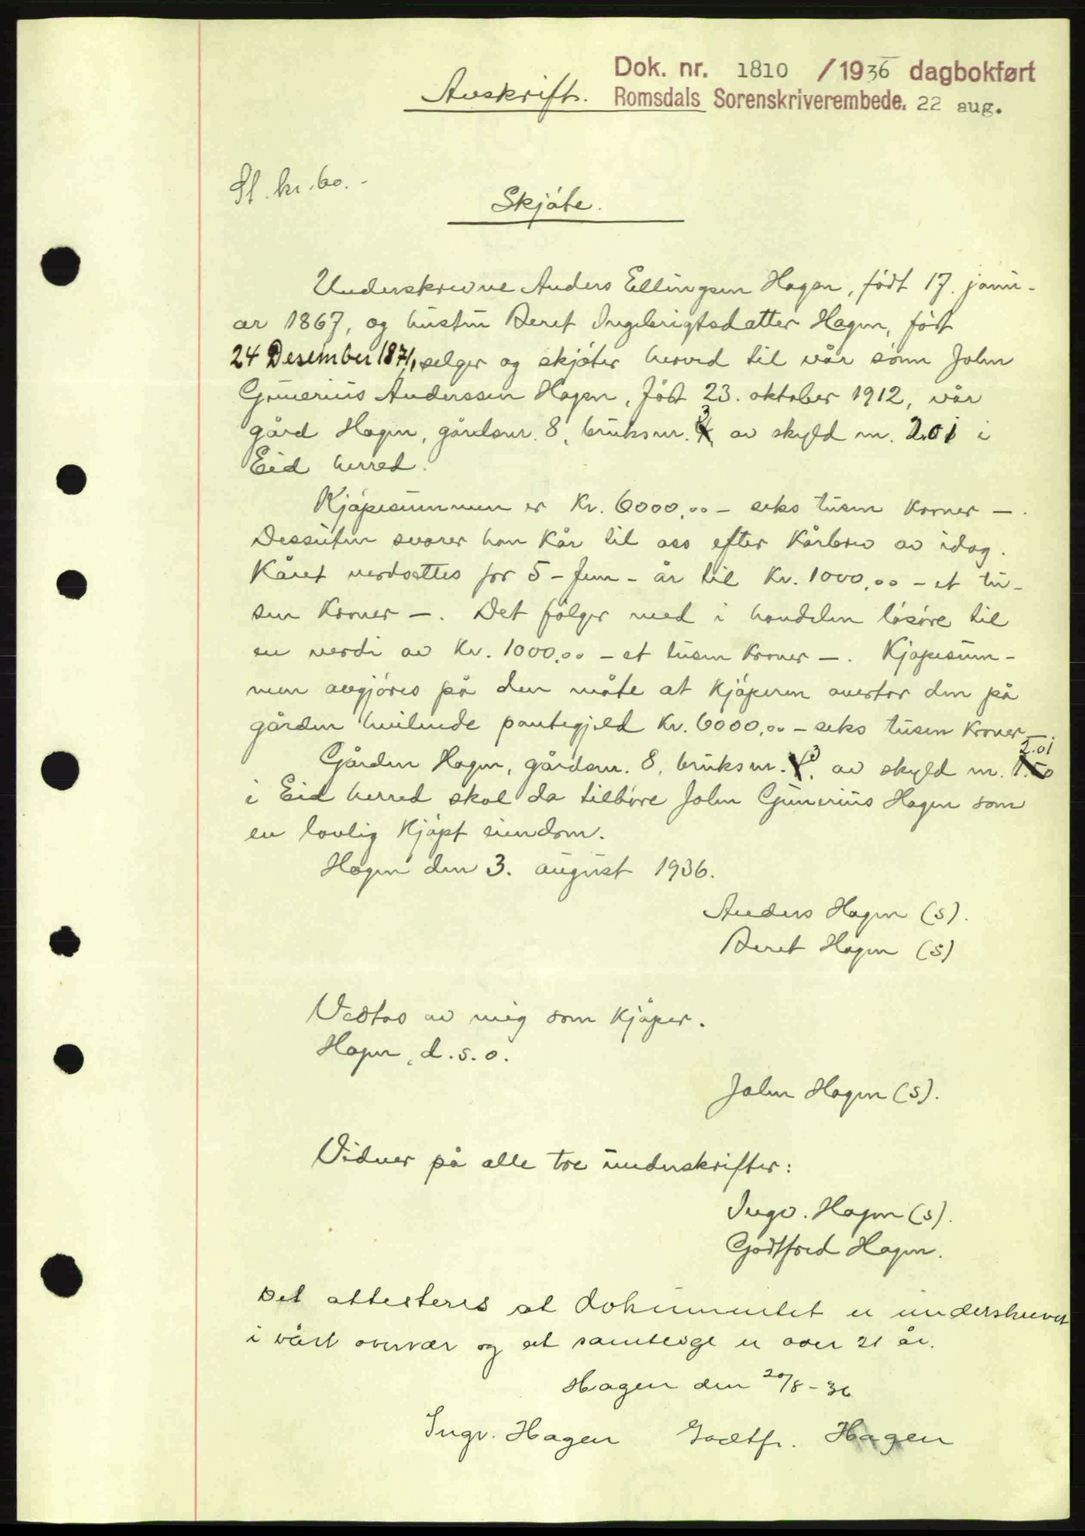 Dok. nr. 1810 /1936 dagbokført
Romsdals Sorenskriverembede. 22 aug.
Avskrift.
St. kr. 60.-
Skjøte.
Underskrevne Anders Ellingsen Hagen, født 17. janu-
ar 1867, og hustru Beret Ingebrigtsdatter Hagen, født
24 Desember 1871, selger og skjøter herved til vår sønn John
Gunerius Anderssen Hagen, født 23. oktober 1912, vår
gård Hagen, gårdsnr. 8, bruksnr. 3 av skyld m. 2.01 i
Eid herred.
Kjøpesummen er Kr. 6000,00 - seks tusen kroner -.
Dessuten svarer han kår til oss efter kårbrev av idag.
Kåret verdsettes for 5 - fem - år til Kr. 1000,00 - et tu-
sen kroner -. Det følger med i handelen løsøre til
en verdi av Kr. 1000,00 - et tusen kroner -. Kjøpesum-
men avgjøres på den måte at kjøperen overtar den på
gården hvilende pantegjeld Kr. 6000,00 - seks tusen kroner -.
Gården Hagen, gårdsnr. 8, bruksnr. 3, av skyld m. 2.01
i Eid herred skal da tilhøre John Gunerius Hagen som
en lovlig kjøpt eiendom.
Hagen den 3. august 1936.
Anders Hagen (s).
Beret Hagen (s)
Vedtas av mig som kjøper.
Hagen, d.s.o.
John Hagen (s).
Vidner på alle tre underskrifter:
Ingv. Hagen (s).
Godtfred Hagen.
Det attesteres at dokumentet er underskrevet
i vårt overvær og at samtlige er over 21 år.
Hagen den 20/8-36
Ingv. Hagen Godtfr. Hagen